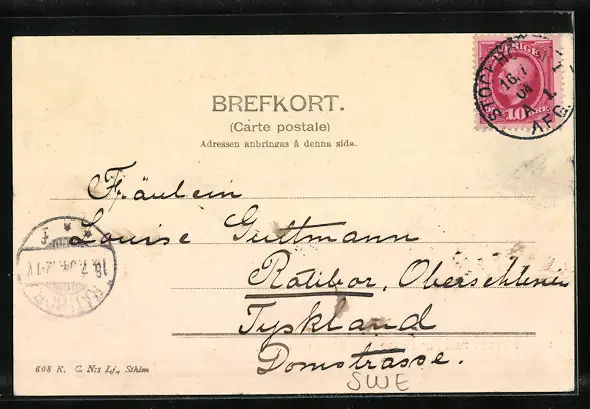 BREFKORT.
(Carte postale)
Adressen anbringas å denna sida.
SVERIGE
10 ÖRE
STOCKHOLM
16.7
04
A 1.
AFG.
Fräulein
Louise Guttmann
Ratibor, Oberschlesien
Tyskland
Domstrasse.
18.7.04
RATIBOR
608 K. C. N:s Lj., Sthlm
SWE